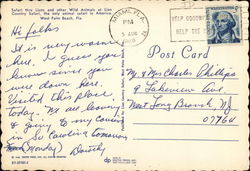 Safari thru Lions and other Wild Animals at Lion
Country Safari, the only animal safari in America,
West Palm Beach, Fla.
PM
HELP
HELP THE
Post Card
Hi folks
It is very warm
here. I guess you
know since you
were down here.
Visited this place
today. We are leaving
& going to my cousin
in So Carolina tomorrow
(Monday)
Dorothy
Mr & Mrs Charles Phillips
9 Lakeview Ave.
West Long Branch, NJ
07764